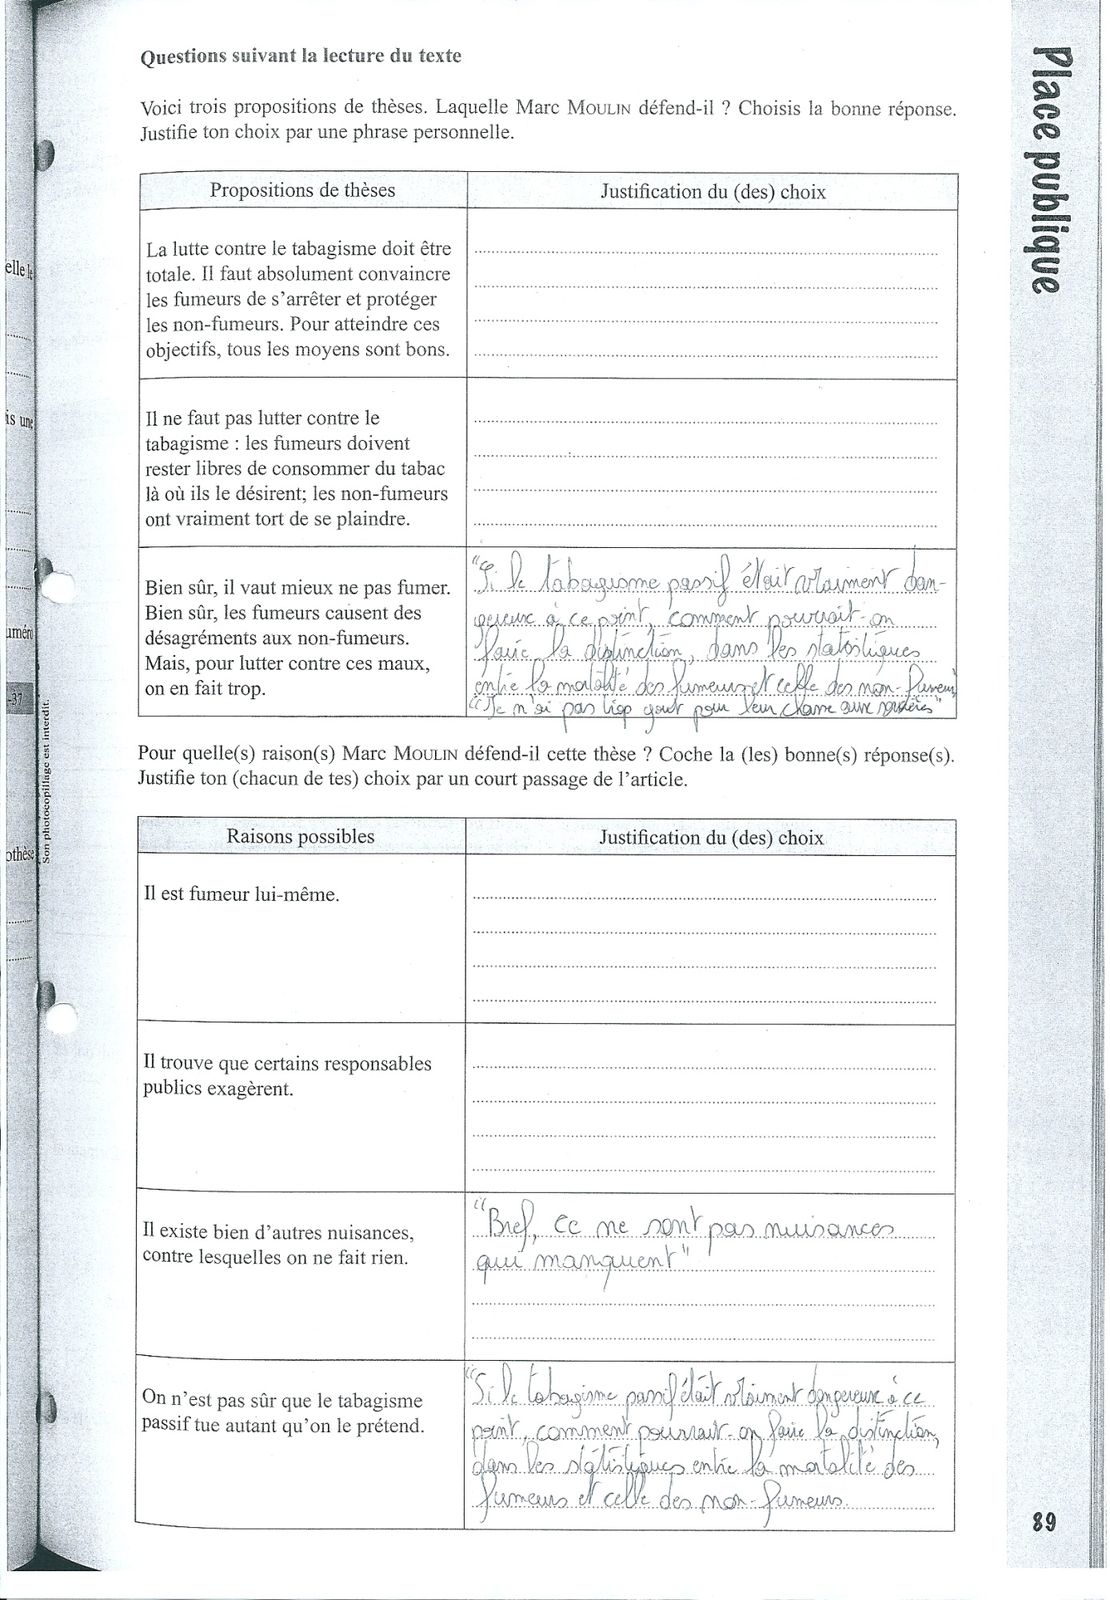 Questions suivant la lecture du texte
Voici trois propositions de thèses. Laquelle Marc MOULIN défend-il ? Choisis la bonne réponse.
Justifie ton choix par une phrase personnelle.
Propositions de thèses
Justification du (des) choix
La lutte contre le tabagisme doit être
totale. Il faut absolument convaincre
les fumeurs de s'arrêter et protéger
les non-fumeurs. Pour atteindre ces
objectifs, tous les moyens sont bons.
Il ne faut pas lutter contre le
tabagisme : les fumeurs doivent
rester libres de consommer du tabac
là où ils le désirent; les non-fumeurs
ont vraiment tort de se plaindre.
Bien sûr, il vaut mieux ne pas fumer.
Bien sûr, les fumeurs causent des
désagréments aux non-fumeurs.
Mais, pour lutter contre ces maux,
on en fait trop.
"Si le tabagisme passif était vraiment dan-
gereux à ce point, comment pourrait-on
faire la distinction, dans les statistiques
entre la mortalité des fumeurs et celle des non-fumeurs
"Je n'ai pas trop gout pour leur chasse aux sorcières"
Pour quelle(s) raison(s) Marc MOULIN défend-il cette thèse ? Coche la (les) bonne(s) réponse(s).
Justifie ton (chacun de tes) choix par un court passage de l'article.
Raisons possibles
Justification du (des) choix
Il est fumeur lui-même.
Il trouve que certains responsables
publics exagèrent.
Il existe bien d'autres nuisances,
contre lesquelles on ne fait rien.
"Bref, ce ne sont pas nuisances
qui manquent"
On n'est pas sûr que le tabagisme
passif tue autant qu'on le prétend.
"Si le tabagisme passif était vraiment dangereux à ce
point, comment pourrait-on faire la distinction,
dans les statistiques entre la mortalité des
fumeurs et celle des non-fumeurs.
Place publique
89
elle le
is une
uméro
-37
othèse
Son photocopillage est interdit.